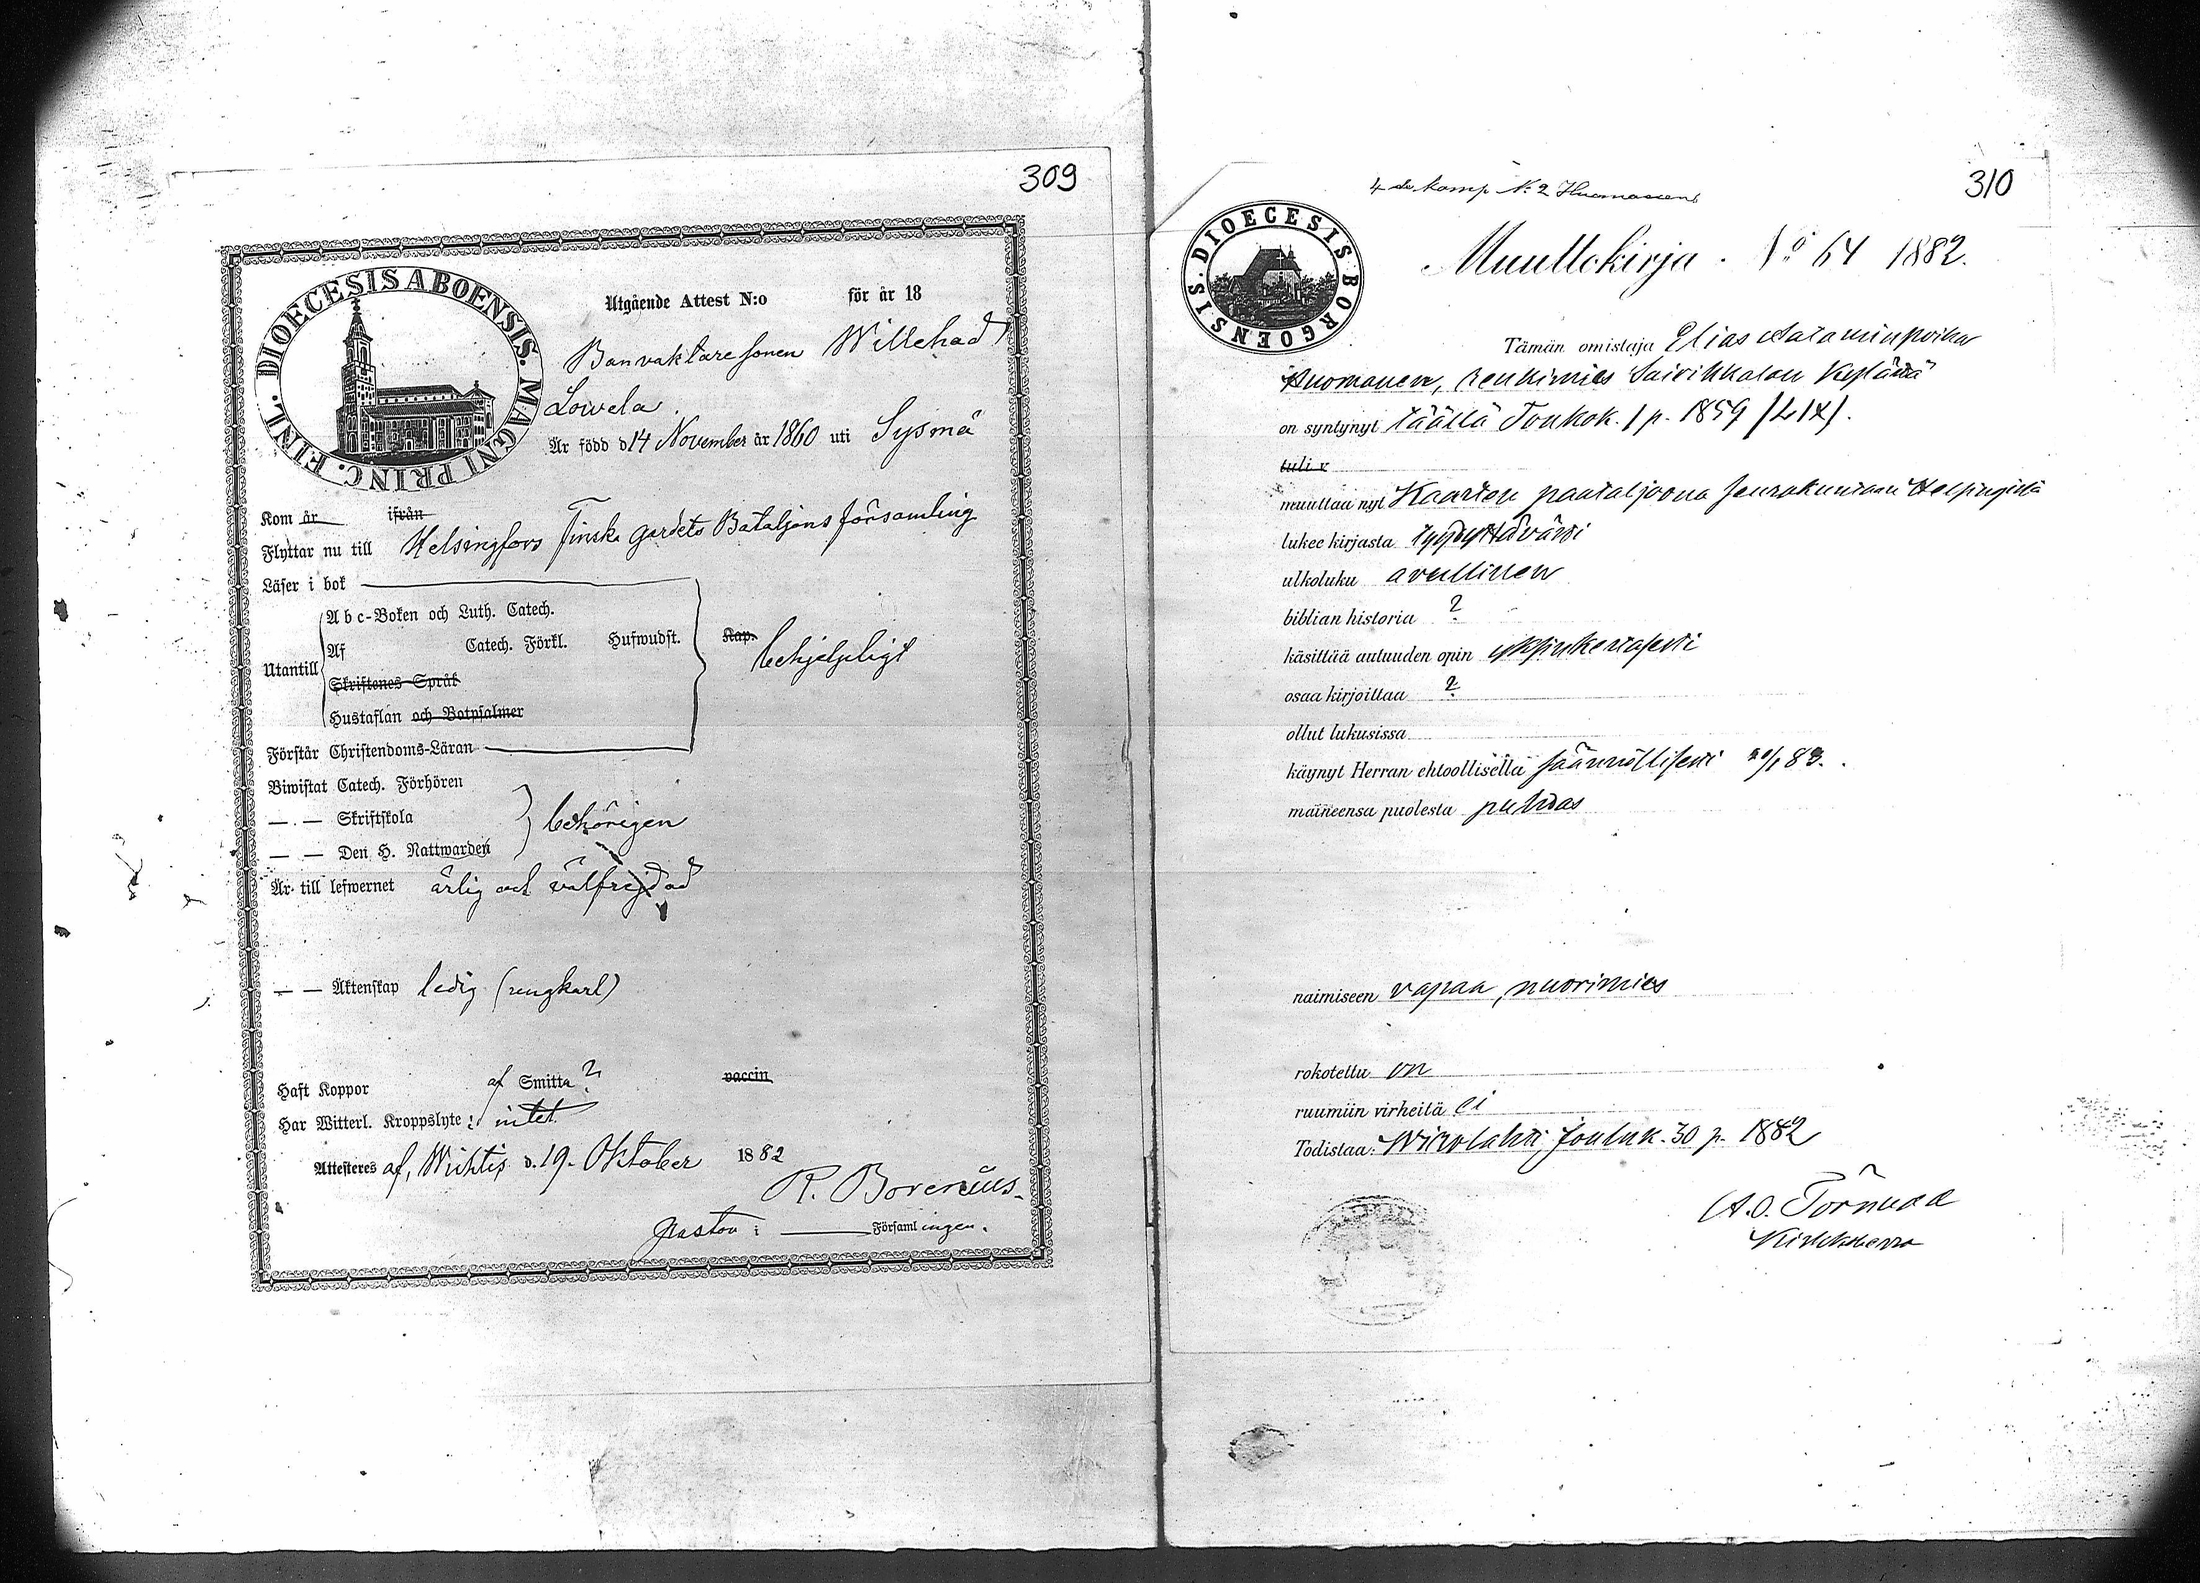 309
DIOECESIS ABOENSIS. MAGNI PRINC. FINL.
Utgående Attest N:o för år 18
Banvaktaresonen Willehad
Lowela.
Är född d 14 November år 1860 uti Sysmä
Kom år ifrån
Flyttar nu till Helsingfors Finska gardets Bataljons församling
Läser i bok
Utantill
Abc-Boken och Luth. Catech.
Af Catech. Förkl. Hufwudst. Kap. behjelpligt
Skriftenes Språk
Hustaflan och Botpsalmer
Förstår Christendoms-Läran
Biwistat Catech. Förhören
— . — Skriftskola behörigen
— — Den H. Nattwarden
Är till lefwernet ärlig och välfrejdad
— — Äktenskap ledig (rengkarl)
Haft Koppor af Smitta? vaccin
Har Witterl. Kroppslyte: intet
Attesteres af, Wichtis d. 19. Oktober 1882
R. Borenius.
Pastor i Församlingen.
310
4 de komp N:2
DIOECESIS BORGOENSIS.
Muuttokirja. No 64 1882.
Tämän omistaja Elias Adaminpoika
Huomanen, renkimies kylästä
on syntynyt täällä Toukok. 1 p. 1859 /LIX/.
tuli v
muuttaa nyt Kaartin pataljoona seurakuntaan Helsingistä
lukee kirjasta tyydyttävästi
ulkoluku avullinen
biblian historia ?
käsittää autuuden opin yksinkertasesti
osaa kirjoittaa ?
ollut lukusissa
käynyt Herran ehtoollisella säännöllisesti 83.
maineensa puolesta puhdas
naimiseen vapaa, nuorimies
rokotettu on
ruumiin virheitä ei
Todistaa: Wirolahti, Jouluk. 30 p. 1882
A.O. Törnudd
Kirkkoherra